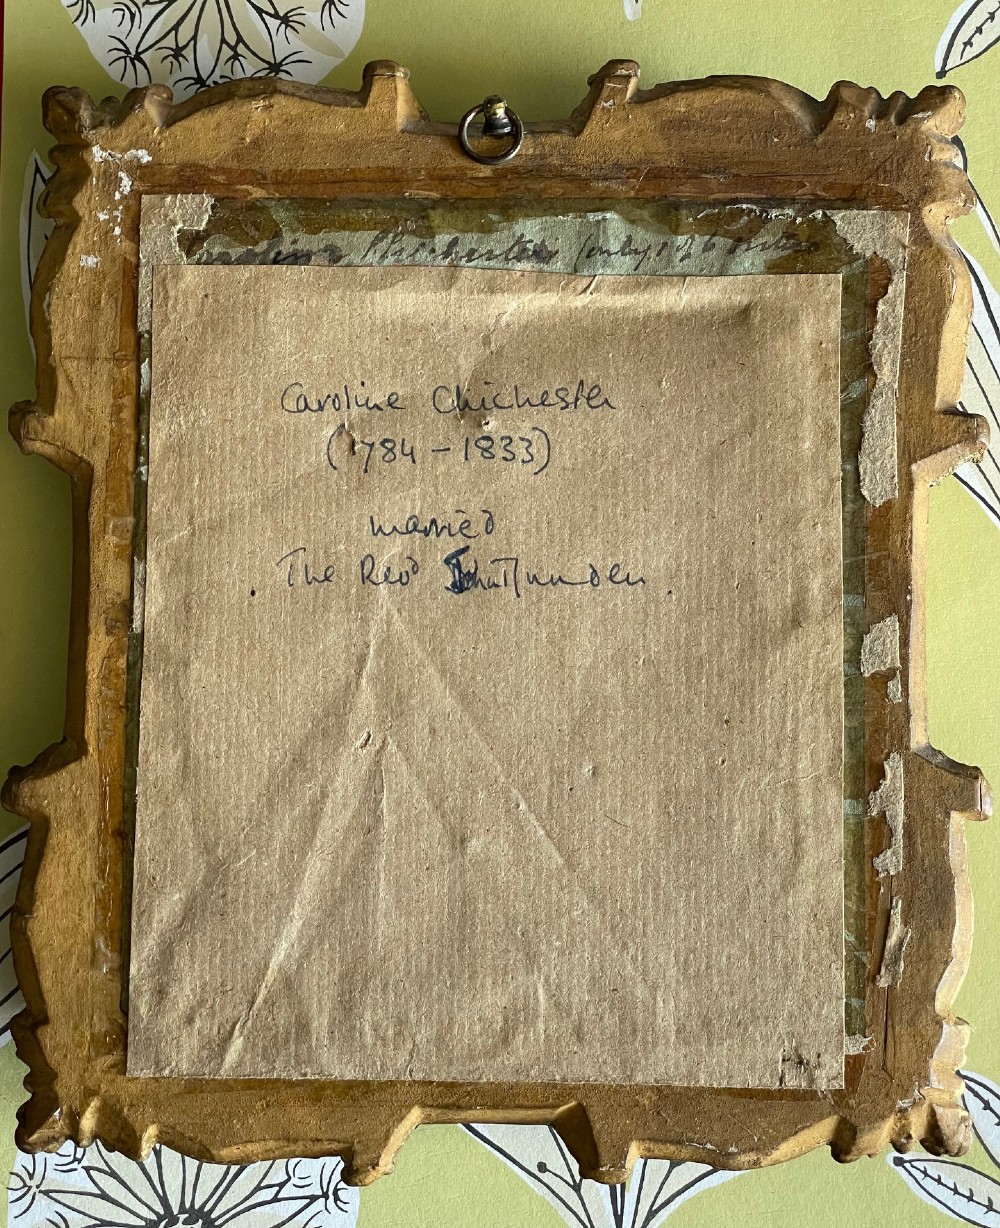 Caroline Chichester (only 1 of 6
Caroline Chichester
(1784 – 1833)
married
The Revd John